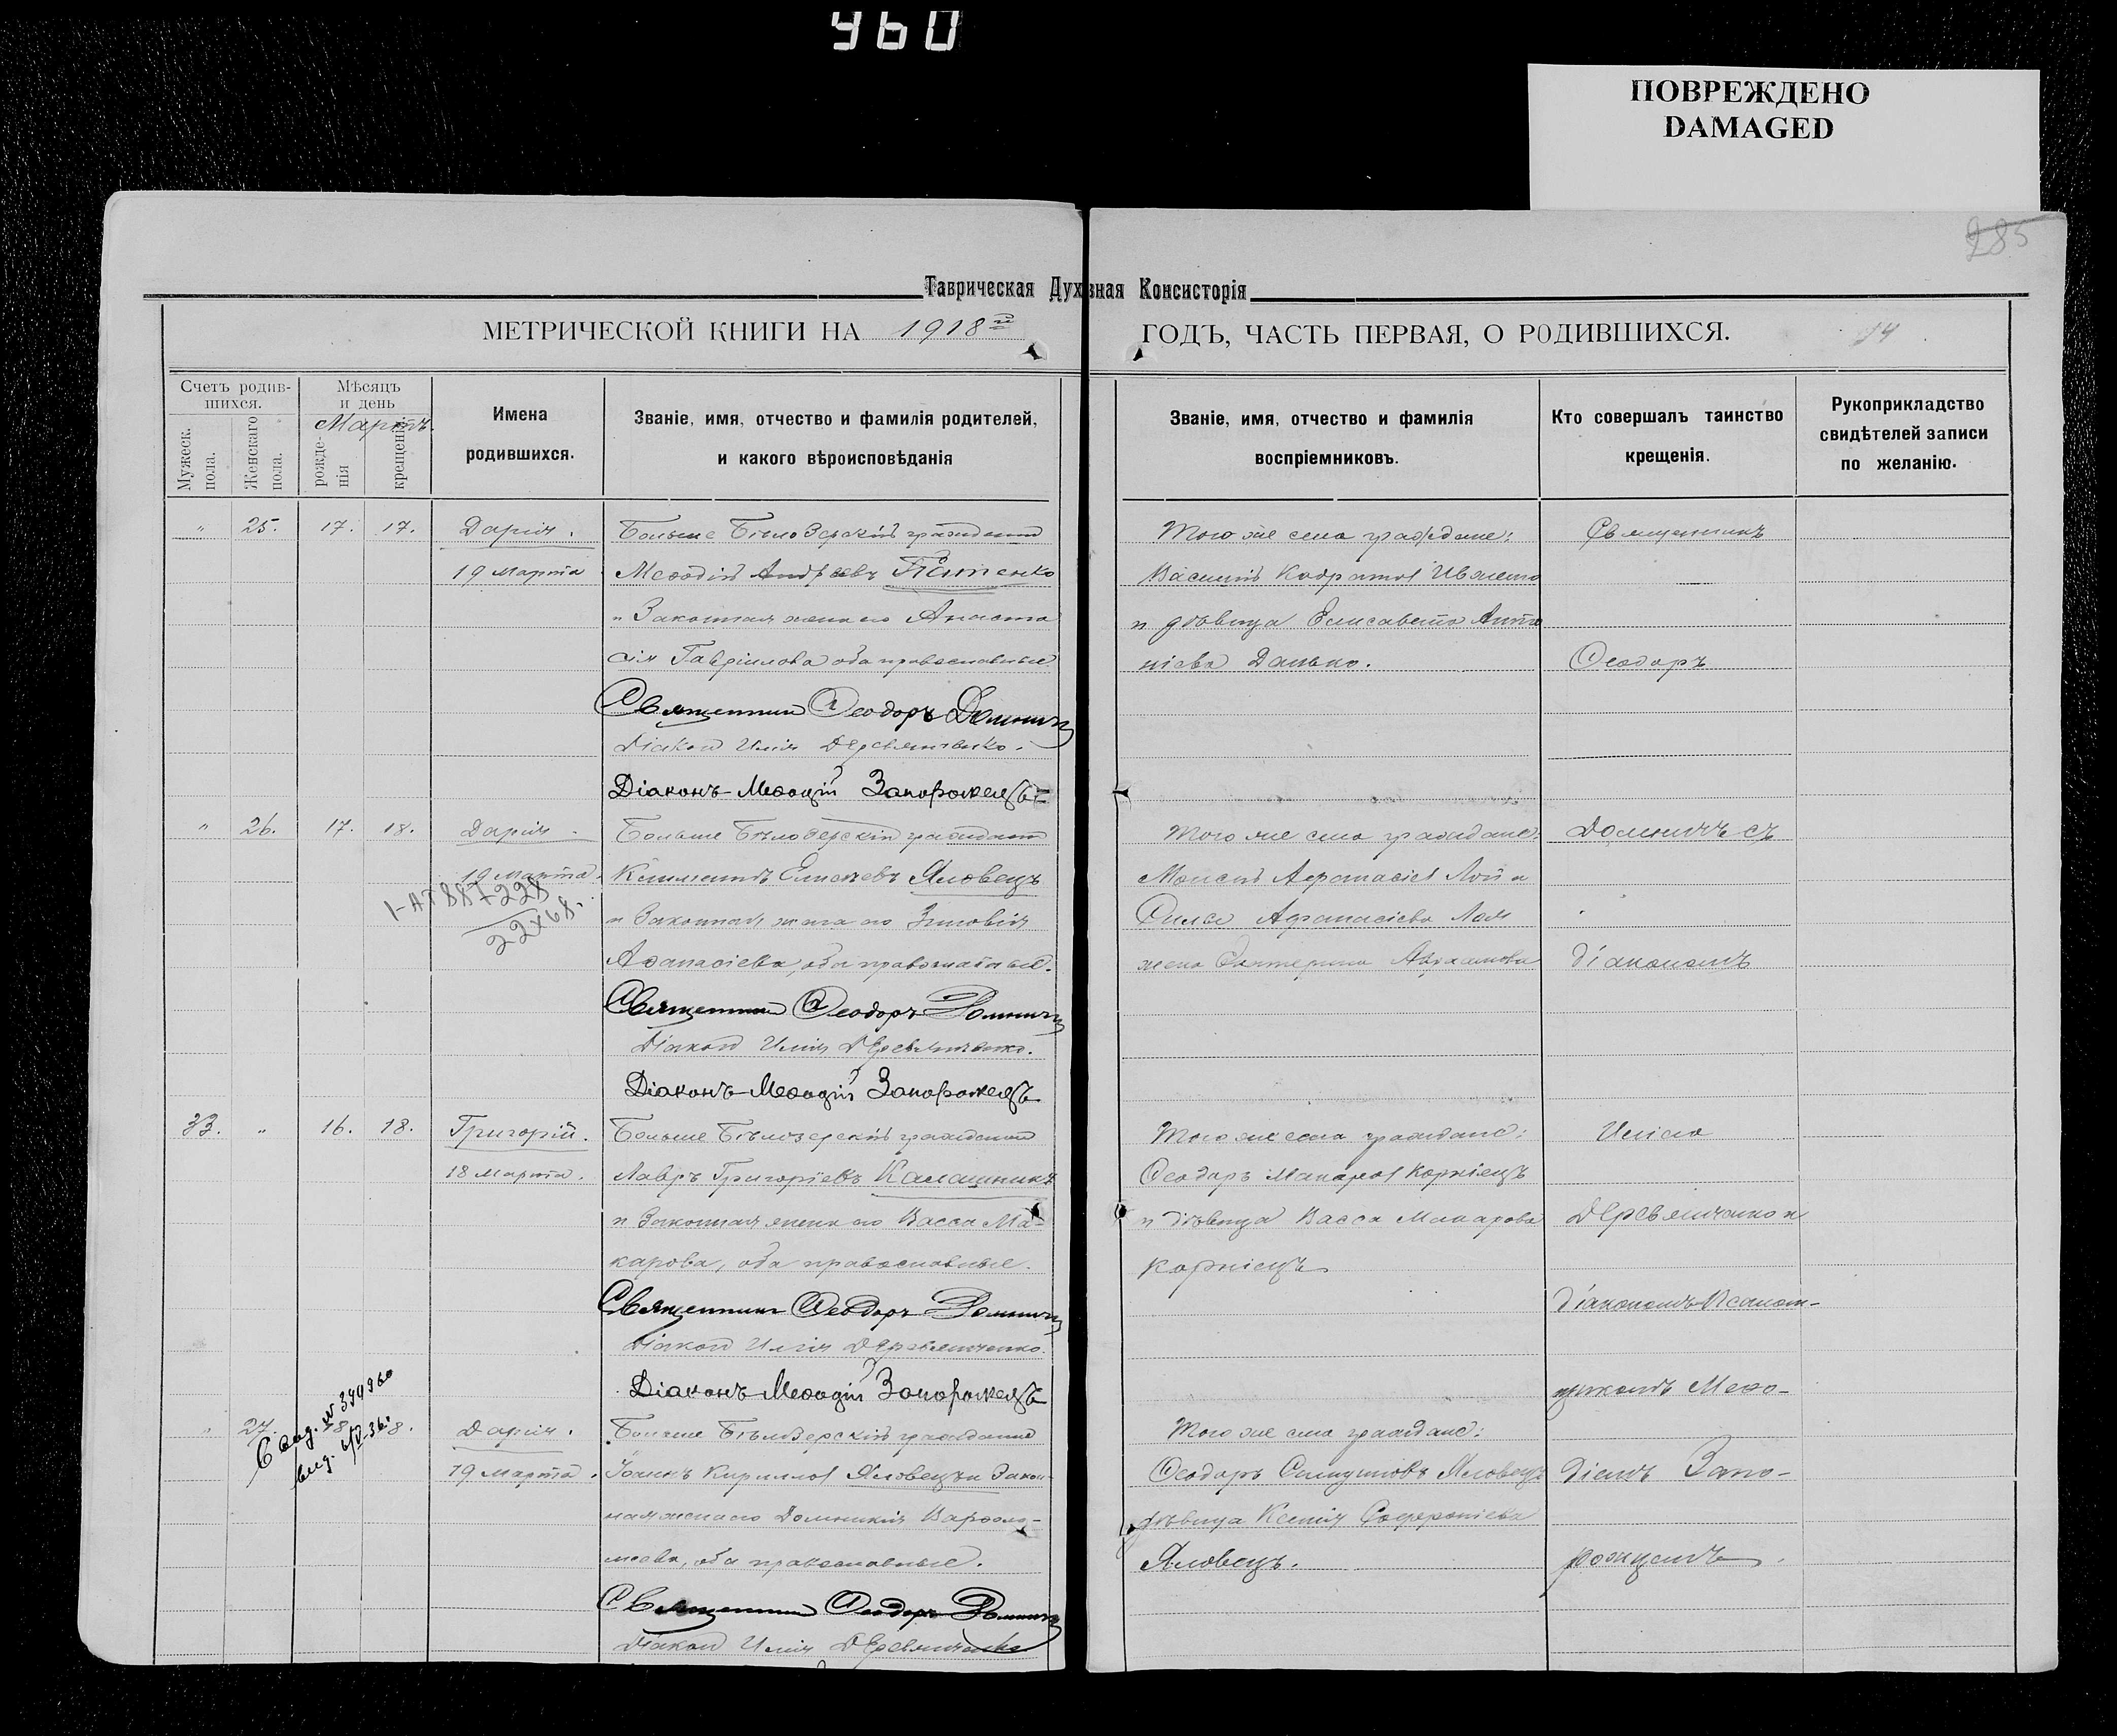 960
ПОВРЕЖДЕНО
DAMAGED
285
Таврическая Духовная Консисторія
МЕТРИЧЕСКОЙ КНИГИ НА 1918 ГОДЪ, ЧАСТЬ ПЕРВАЯ, О РОДИВШИХСЯ.
Счетъ родив-
шихся.
Мужеск. пола.
Женскаго пола.
Мѣсяцъ
и день
Мартъ.
рожде-
нія
крещенія
Имена
родившихся.
Званіе, имя, отчество и фамилія родителей,
и какого вѣроисповѣданія
Званіе, имя, отчество и фамилія
воспріемниковъ.
Кто совершалъ таинство
крещенія.
Рукоприкладство
свидѣтелей записи
по желанію.
" 25. 17. 17. Дарія.
19 Марта
Больше Бѣлозерскій гражданин
Меѳодій Андреевъ
и Законная жена его Анаста
сія Гавріилова оба православные
Священник Ѳеодоръ Домнич
Діакон Илія Деревянченко.
Діаконъ Меѳодій Запорожецъ
Того же села граждане:
Василій
и дѣвица Елисавета Анто
ніева Данько.
" 26. 17. 18. Дарія.
19 Марта.
1-АП 887228
22 X 68.
Больше Бѣлозерскій гражданин
Климентъ Елисеевъ Яловецъ
и Законная жена его Зиновія
Аѳанасіева, оба православные.
Священник Ѳеодоръ Домнич
Діакон Илія Деревянченко.
Діаконъ Меѳодій Запорожецъ
Того же села граждане:
Моисей Афанасіев Лой и
Афанасіева Лоя
жена Екатерина Авраамова
33. " 16. 18. Григорій.
18 Марта.
Больше Бѣлозерскій гражданин
Лавръ Григоріевъ Калашникъ
и Законная жена его Васса Ма-
карова, оба православные.
Священник Ѳеодоръ Домнич
Діакон Илія Деревянченко.
Діаконъ Меѳодій Запорожецъ
Того же села граждане:
Ѳеодоръ Макаров Корніецъ
и дѣвица Васса Макарова
Корніецъ
" 27. 18. 18. Дарія.
19 Марта.
Больше Бѣлозерскій гражданин
Іоаннъ Кириллов Яловецъ и Закон-
ная жена его Домникія Варѳоло-
меева, оба православные.
Священник Ѳеодоръ Домнич
Діакон Илія Деревянченко
Того же села граждане:
Ѳеодоръ Яловецъ
дѣвица Ксенія Софроніева
Яловецъ.
Священникъ
Ѳеодоръ
Домничъ съ
діакономъ
Иліею
Деревянченко и
діакономъ Псалом-
щикомъ Меѳо-
діемъ Запо-
рожцемъ.